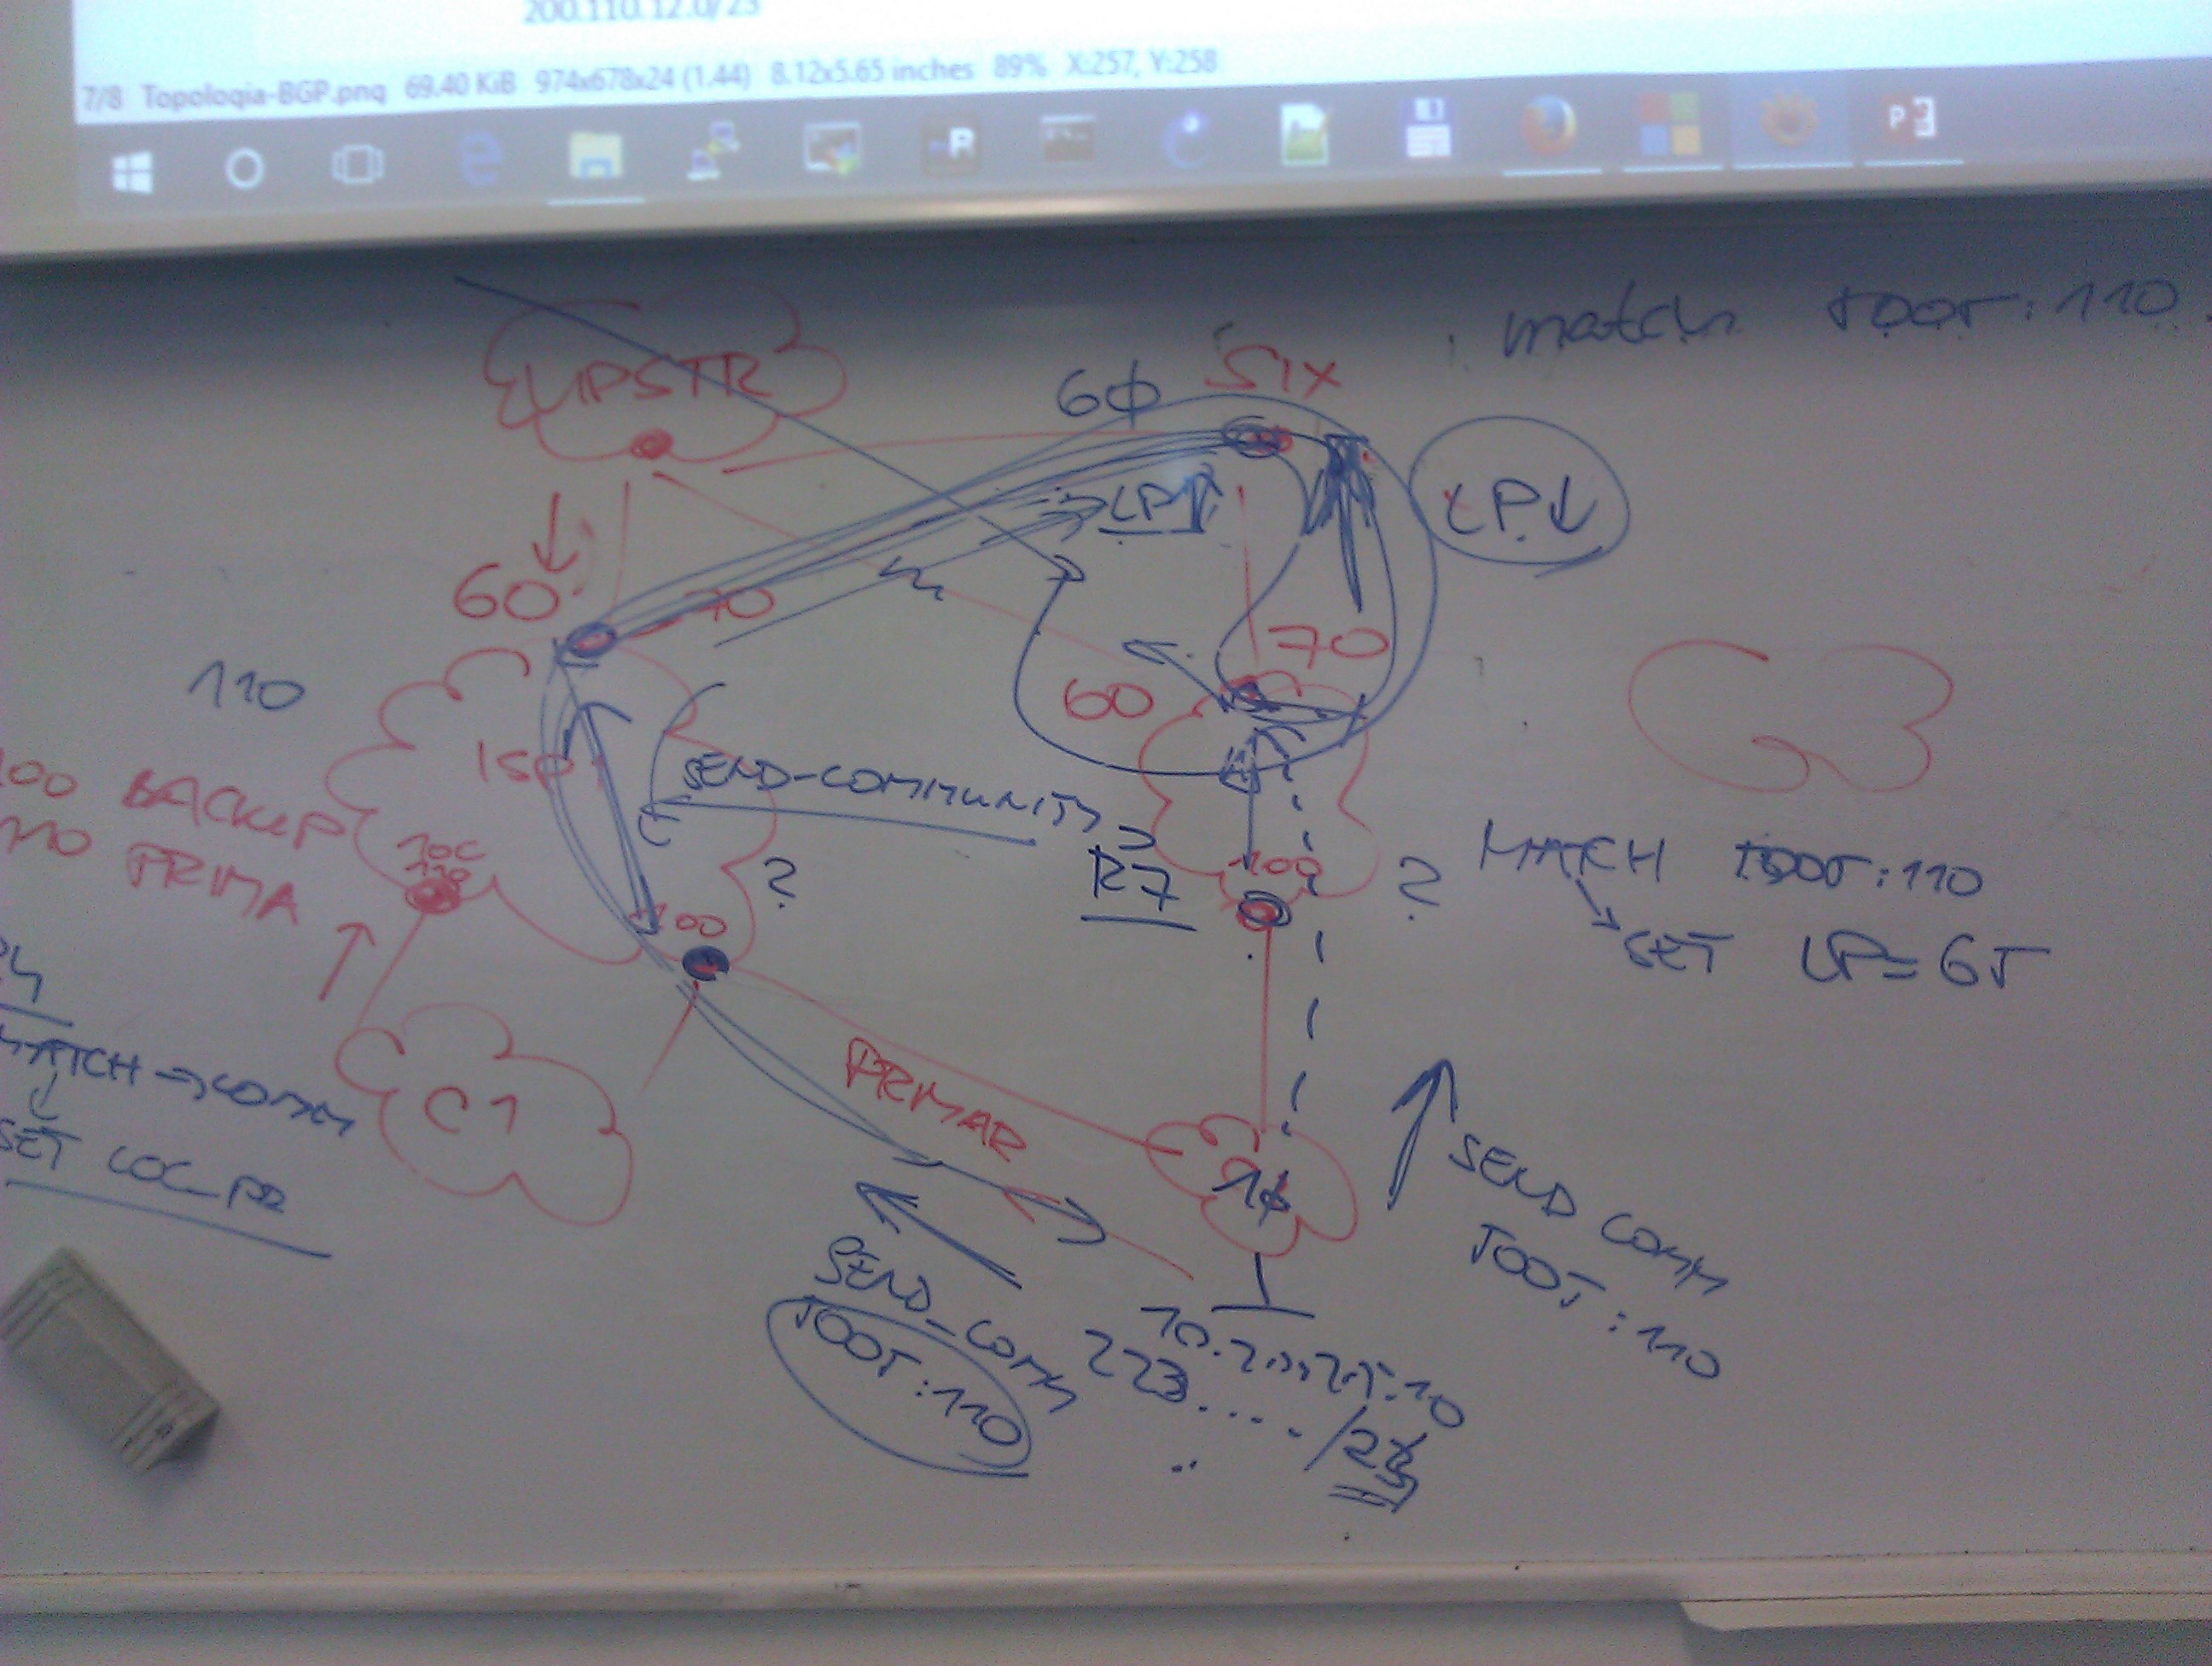 200.110.12.0/23
7/8 Topologia-BGP.png 69.40 KiB 974x678x24 (1.44) 8.12x5.65 inches 89% X:257, Y:258
R
P3
match TOOT:110
UPSTR
6ϕ
SIX
LP↑
LP↓
60
70
70
60
110
150
SEND-COMMUNITY
R7
100 BACKUP
110 PRIMA
100
110
100
?
100
?
MATCH TOOT:110
SET LP=65
MATCH → COMM
SET LOC_PR
C1
PRIMAR
SEND_COMM
TOOT:110
SEND COMM
TOOT:110
223.... /23